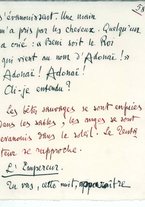 38
s'évanouissant. Une main
m'a pris par les cheveux. Quelqu'un
a crié : « Béni soit le Roi
qui vient au nom d'Adonaï ! »
Adonaï ! Adonaï !
Ai-je entendu ?
Les bêtes sauvages se sont enfuies
dans les sables, les anges se sont
évanouis dans le soleil. Le Tenta-
teur se rapproche.
L'Empereur.
Tu vas, cette nuit, apparaître